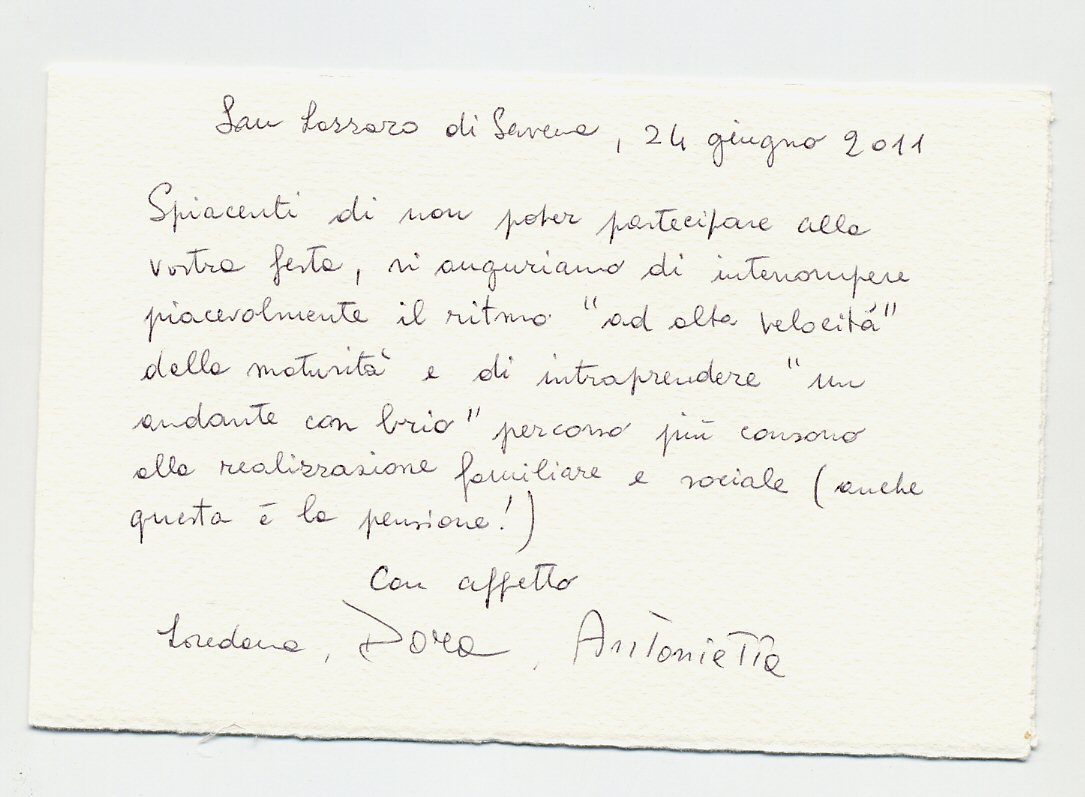 San Lazzaro di Savena, 24 giugno 2011
Spiacenti di non poter partecipare alla
vostra festa, vi auguriamo di interrompere
piacevolmente il ritmo "ad alta velocità"
della maturità e di intraprendere "un
andante con brio" percorso più consono
alla realizzazione familiare e sociale (anche
questa è la pensione!)
Con affetto
Loredana, Dora, Antonietta